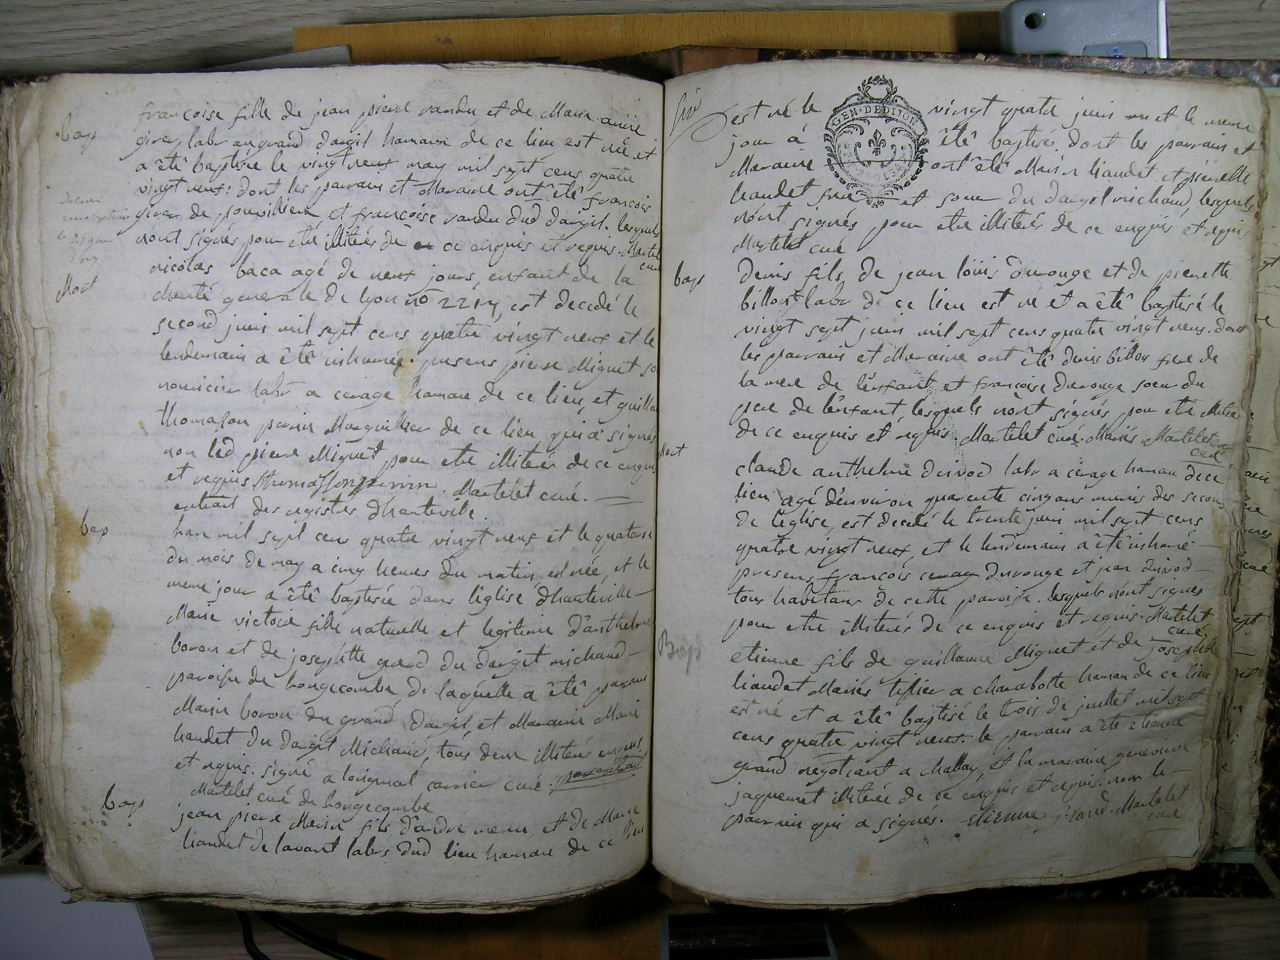 bap
françoise fille de jean pierre vandu et de Marie anne
girey labr au grand dargit hamau de ce lieu est née et
a été baptisée le vingt neuf may mil sept cens quatre
vingt neuf: dont les parain et Maraine ont été françois
girey de et francoise vandu dud dargit. lesquels
n'ont signés pour etre illiterés de ce enquis et requis. Martelet
curé
Mort
nicolas baca agé de neuf jours, enfant de la
charité generale de lyon no 2217, est decedé le
second juin mil sept cens quatre vingt neuf et le
lendemain a été inhumé. presens pierre Miguet son
nouricier labr a cerage hamau de ce lieu, et guillau
thomasson perrin Marguillier de ce lieu qui a signé
non led pierre Miguet pour etre illiteré de ce enquis
et requis thomasson perrin. Martelet curé.
extrait des registres d'hauteville.
bap
l'an mil sept cens quatre vingt neuf et le quatorze
du mois de may a cinq heures du matin est née, et le
meme jour a été baptisée dans l'église d'hauteville
Marie victoire fille naturelle et legitime d'anthelme
boron et de josephtte gward du dargit michaud
paroisse de longecombe de laquelle a été parain
Marin boron du grand dargit et Maraine Marie
liaudet du dargit Michaud, tous deux illiterés enquis
et requis. signé a l'original carrier curé.
Martelet curé de longecombe
bap
jean pierre Marin fils d'andré et de Marie
liaudet de lavant labrs dud lieu hamau de ce lieu
est né le vingt quatre juin et le meme
jour à été baptisé, dont les parain et
Maraine ont été Marin liaudet et pierrette
liaudet frere et soeur du dargit michaud, lesquels
n'ont signés pour etre illiterés de ce enquis et requis
Martelet curé
GEN. DE DIJON
bap
denis fils de jean loüis durouge et de pierrette
billion labr de ce lieu est né et a été baptisé le
vingt sept juin mil sept cens quatre vingt neuf. dont
les parrain et Maraine ont été denis billon frere de
la mere de l'enfant et francoise durouge soeur du
pere de l'enfant lesquels n'ont signés pour etre illiterés
de ce enquis et requis. Martelet curé. Mariés. Martelet
curé
Mort
claude anthelme durod labr a cerage hamau de ce
lieu agé d'environ quarente cinq ans munis des secours
de l'église, est decedé le trente juin mil sept cens
quatre vingt neuf, et le lendemain a été inhumé
presens francois durouge et jean durod
tous habitans de cette paroisse. lesquels n'ont signés
pour etre illiterés de ce enquis et requis. Martelet
curé
Bap
etienne fils de guillaume Miguet et de josephte
liaudet Mariés tissier a charabotte hamau de ce lieu
est né et a été baptisé le trois de juillet mil sept
cens quatre vingt neuf. le parain a été etienne
grand negotiant a Challey, et la maraine genevieve
jaquemet illiterée de ce enquis et requis. non le
parrain qui a signés. Etienne grand. Martelet
curé